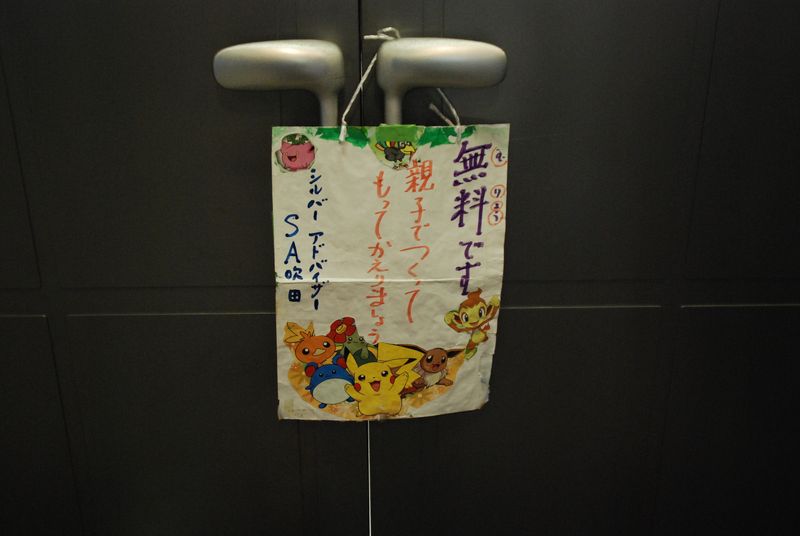 無料です
むりょう
親子でつくって
もってかえりましょう
シルバー アドバイザー
SA吹田